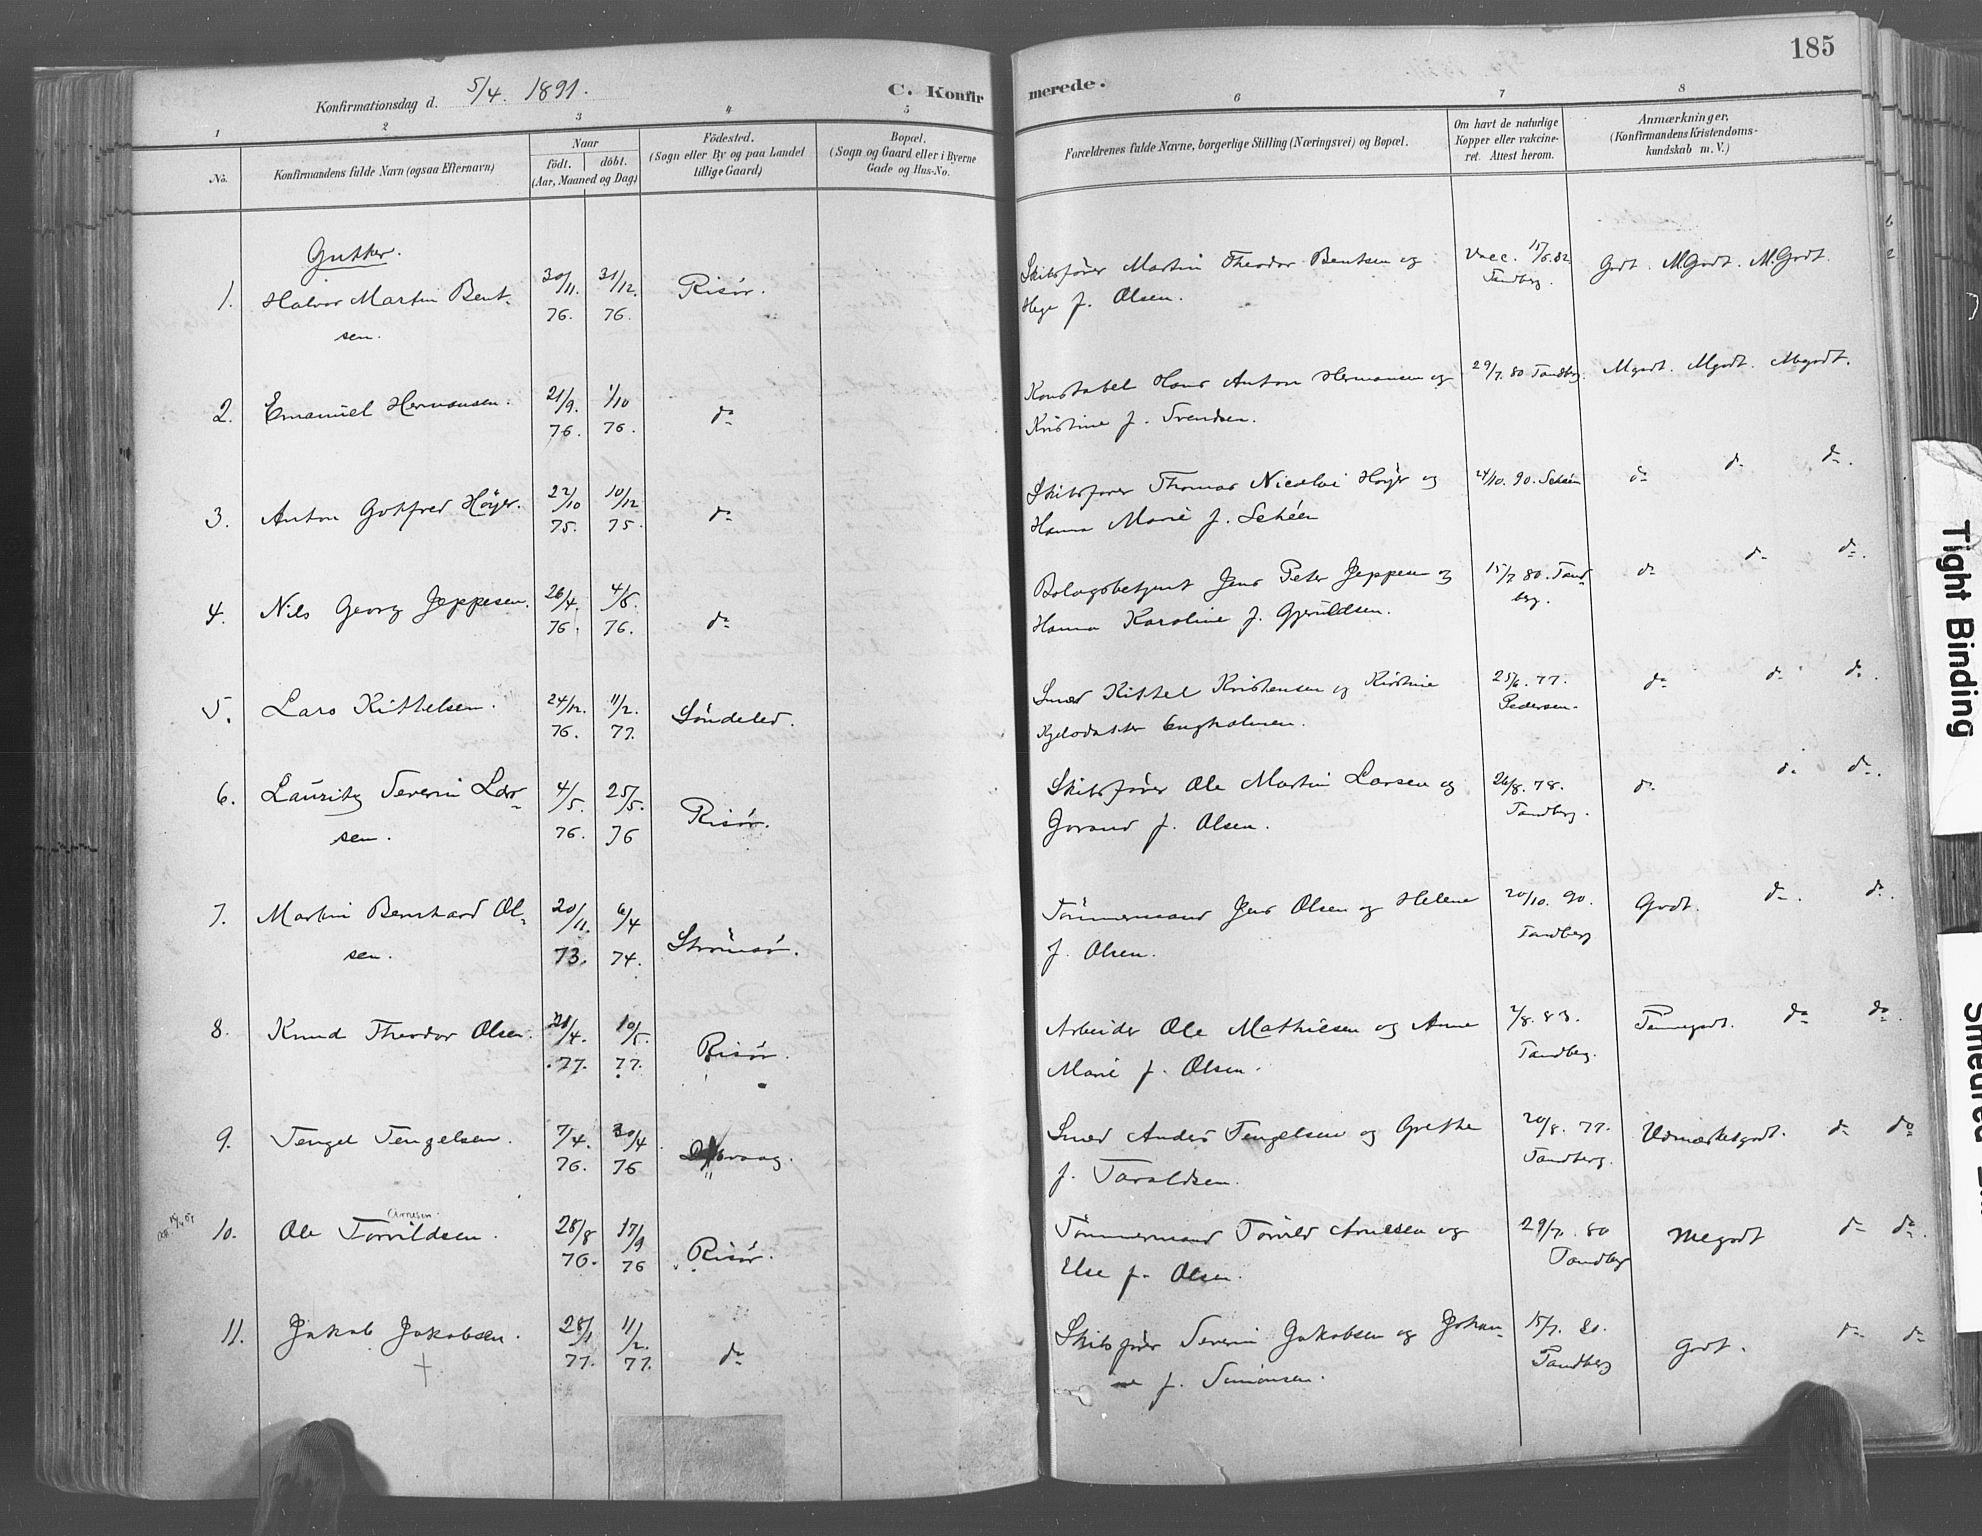 185
Konfirmationsdag d. 5/4. 1891.
C. Konfirmerede.
1 2 3 4 5 6 7 8
No.
Konfirmandens fulde Navn (ogsaa Efternavn)
Naar
födt. döbt.
(Aar, Maaned og Dag)
Födested.
(Sogn eller By og paa Landet
tillige Gaard)
Bopæl.
(Sogn og Gaard eller i Byerne
Gade og Hus-No.
Forældrenes fulde Navne, borgerlige Stilling (Næringsvei) og Bopæl.
Om havt de naturlige
Kopper eller vakcine-
ret. Attest herom.
Anmærkninger,
(Konfirmandens Kristendoms-
kundskab m. V.)
Gutter.
1. Halvor Martin Bent-
sen.
30/11. 76. 31/12. 76. Risör.
Skibsfører Martin Theodor Bentsen og
Hege f. Olsen.
Vacc. 15/6. 82
Tandberg.
Godt. M.Godt. M.Godt.
2. Emanuel Hermansen.
21/9. 76. 1/10 76. do
Konstabel Hans Anton Hermansen og
Kristine f. Svendsen.
29/7. 80 Tandberg.
Mgodt. Mgodt. Megodt.
3. Anton Gotfred Höyer.
22/10 75. 10/12 75. do
Skibsfører Thomas Nicolai Höyer og
Hanna Marie f. Schéen
24/10. 90. Schéen
do do do.
4. Nils Georg Jeppesen.
26/4. 76. 4/6. 76. do
Bolagsbetjent Jens Peter Jeppesen og
Hanna Karoline f. Gjeruldsen.
15/7 80. Tand-
berg.
do do do.
5. Lars Kittelsen.
24/12. 76. 11/2. 77. Söndeled.
Smed Kittel Kristensen og Kirstine
Kjelsdatter Engholmen.
25/6. 77.
Pedersen.
do do do.
6. Lauritz Severin Lar-
sen.
4/5. 76. 25/5. 76 Risör.
Skibsfører Ole Martin Larsen og
Gorand f. Olsen.
26/8. 78.
Tandberg.
do do do.
7. Martin Bernhard Ol-
sen.
20/11. 73. 6/4 74. Strömsö.
Tömmermand Jens Olsen og Helene
f. Olsen.
20/10. 90.
Tandberg
Godt. do. do.
8. Knud Theodor Olsen.
21/4. 77. 10/5. 77. Risör.
Arbeider Ole Mathiesen og Anne
Marie f. Olsen.
2/8. 83.
Tandberg.
Temmegodt. do do.
9. Tengel Tengelsen.
7/4. 76. 30/4 76
Smed Anders Tengelsen og Grethe
f. Taraldsen.
20/8. 77.
Tandberg.
Udmærketgodt. do do
10. Ole Torvildsen.
Arnesen.
28/8 76. 17/9 76 Risör.
Tömmermand Torvild Arnesen og
Else f. Olsen.
29/7. 80
Tandberg
Megodt do do.
11. Jakob Jakobsen.
28/1 77. 11/2. 77. do
Skibsfører Severin Jakobsen og Johan-
ne f. Simonsen.
15/7. 80.
Tandberg
Godt. do do
Tight Binding